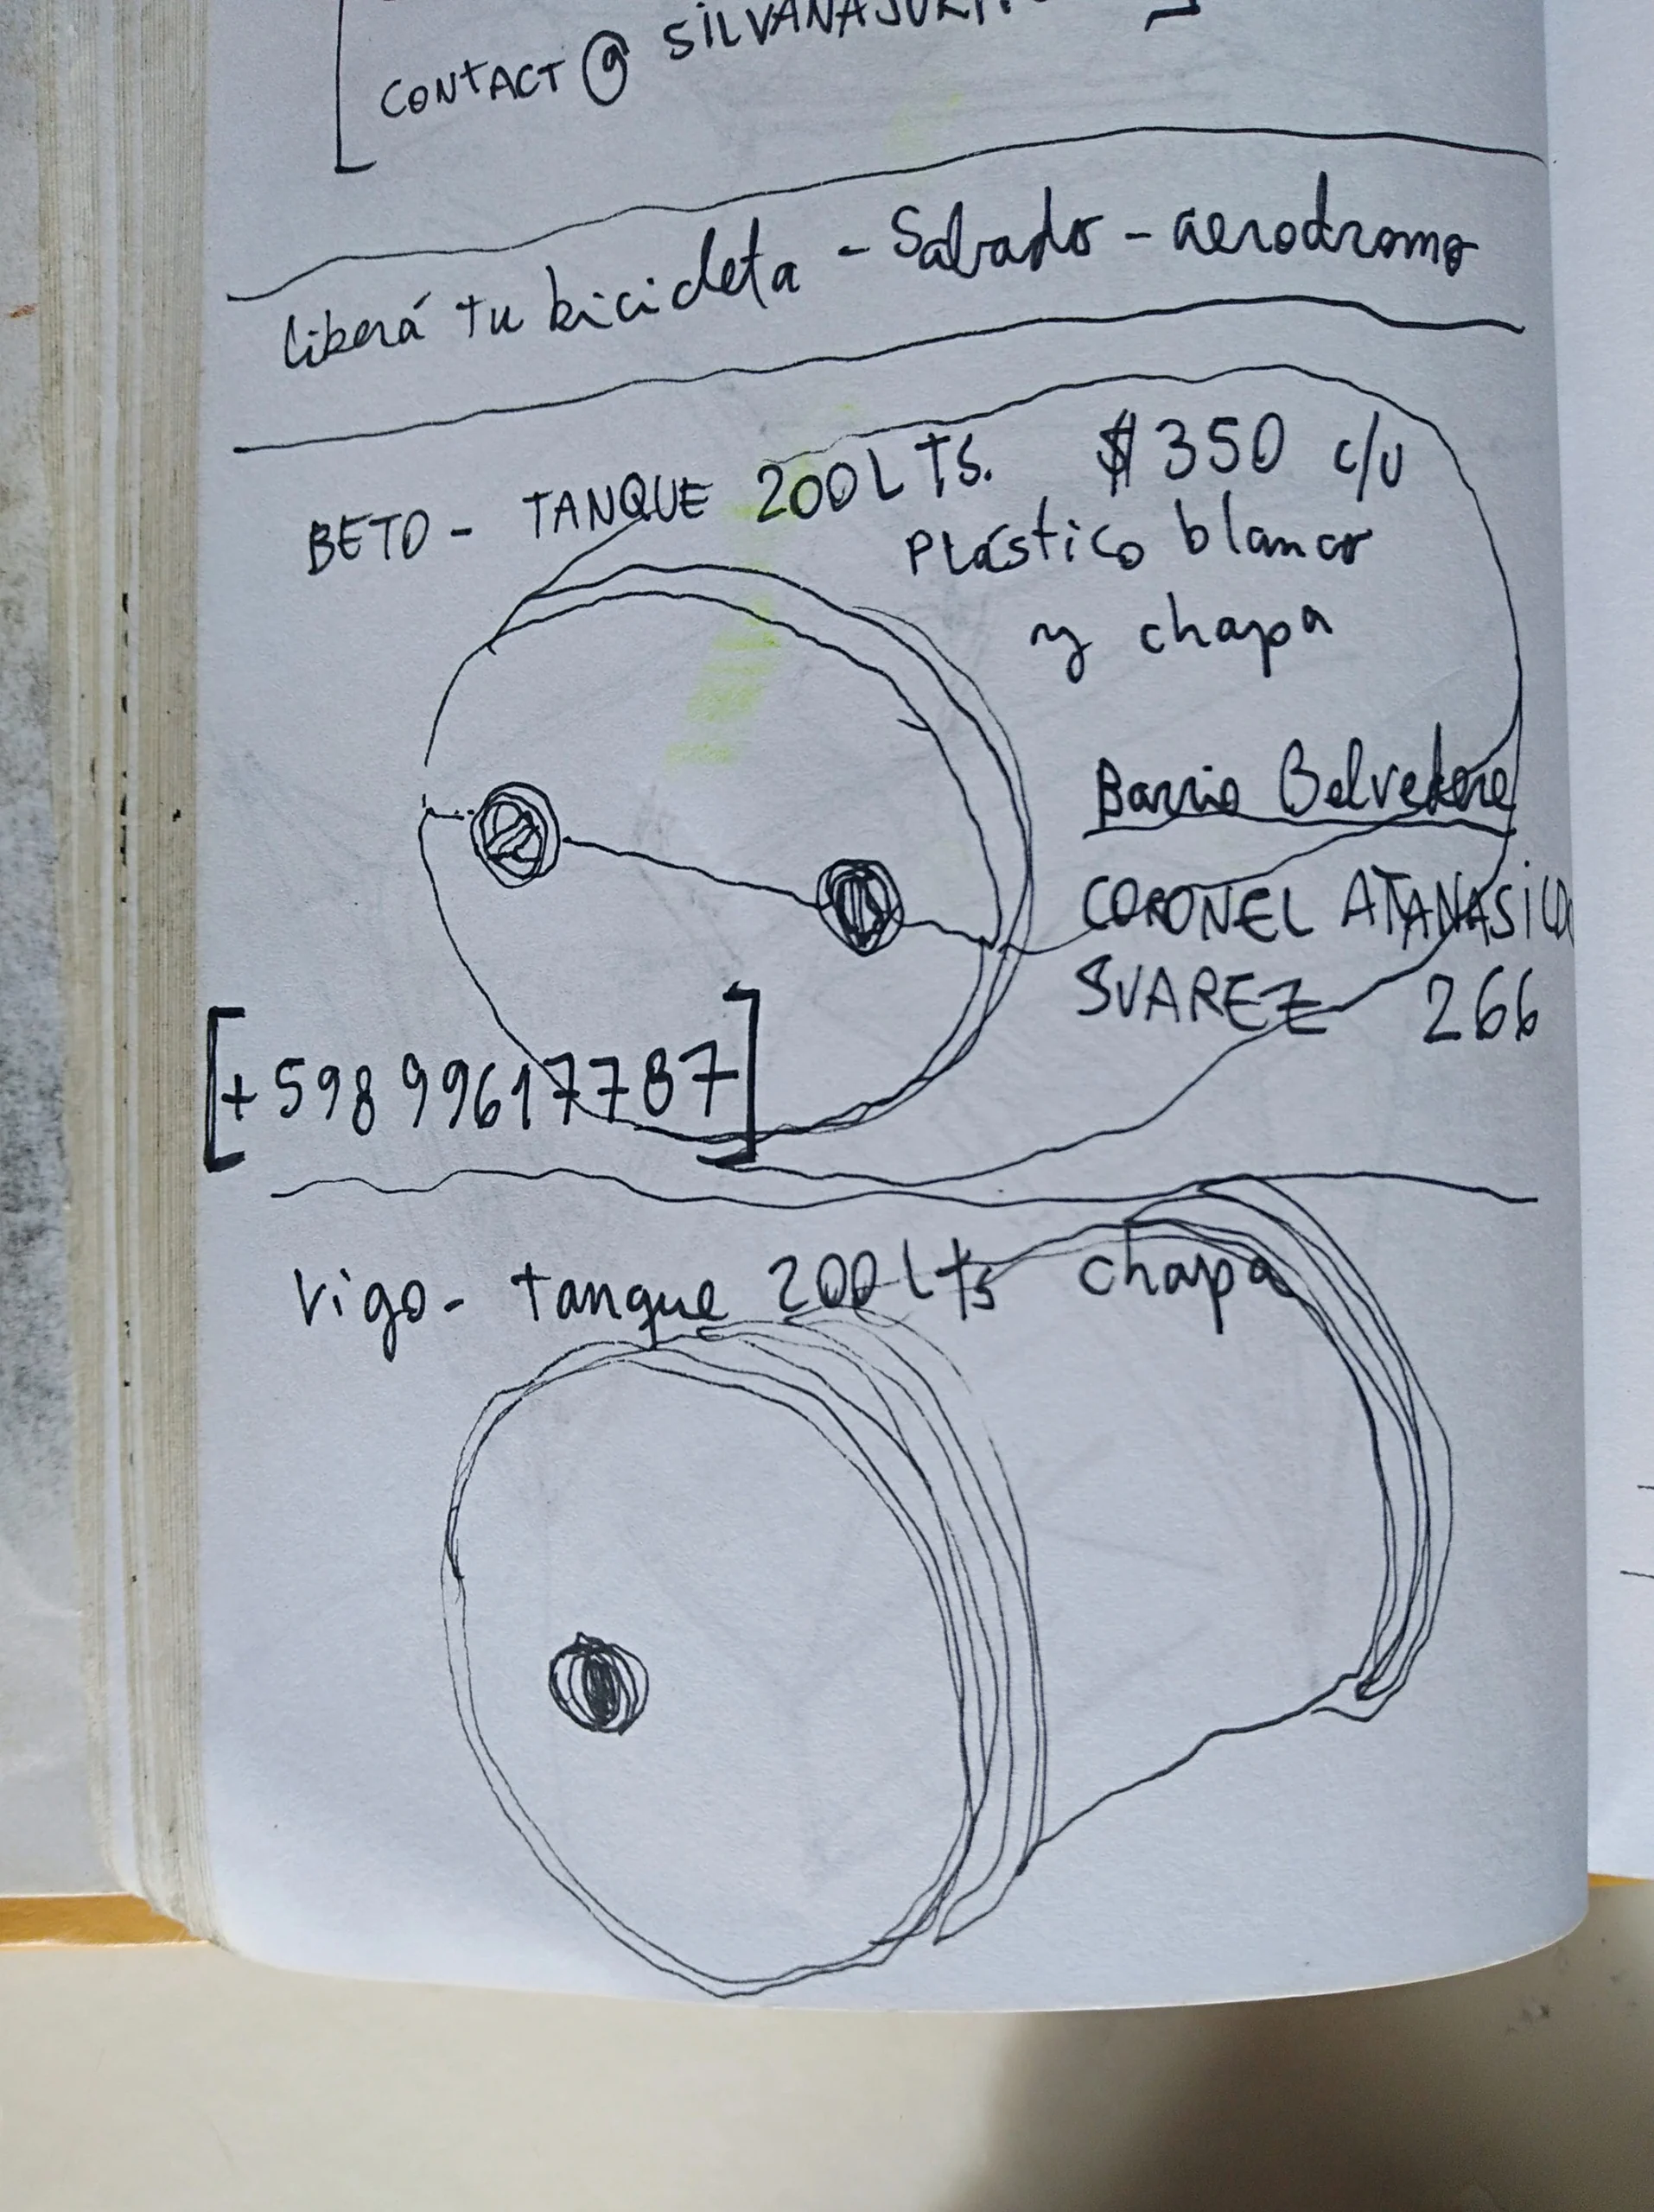 CONTACT@
liberá tu bicicleta - Sabado - aerodromo
BETO - TANQUE 200 LTS. $350 c/u
Plástico blanco
y chapa
Barrio Belvedere
CORONEL ATANASILDO
SUAREZ 266
[+598 99617787]
Vigo - tanque 200 Lts chapa